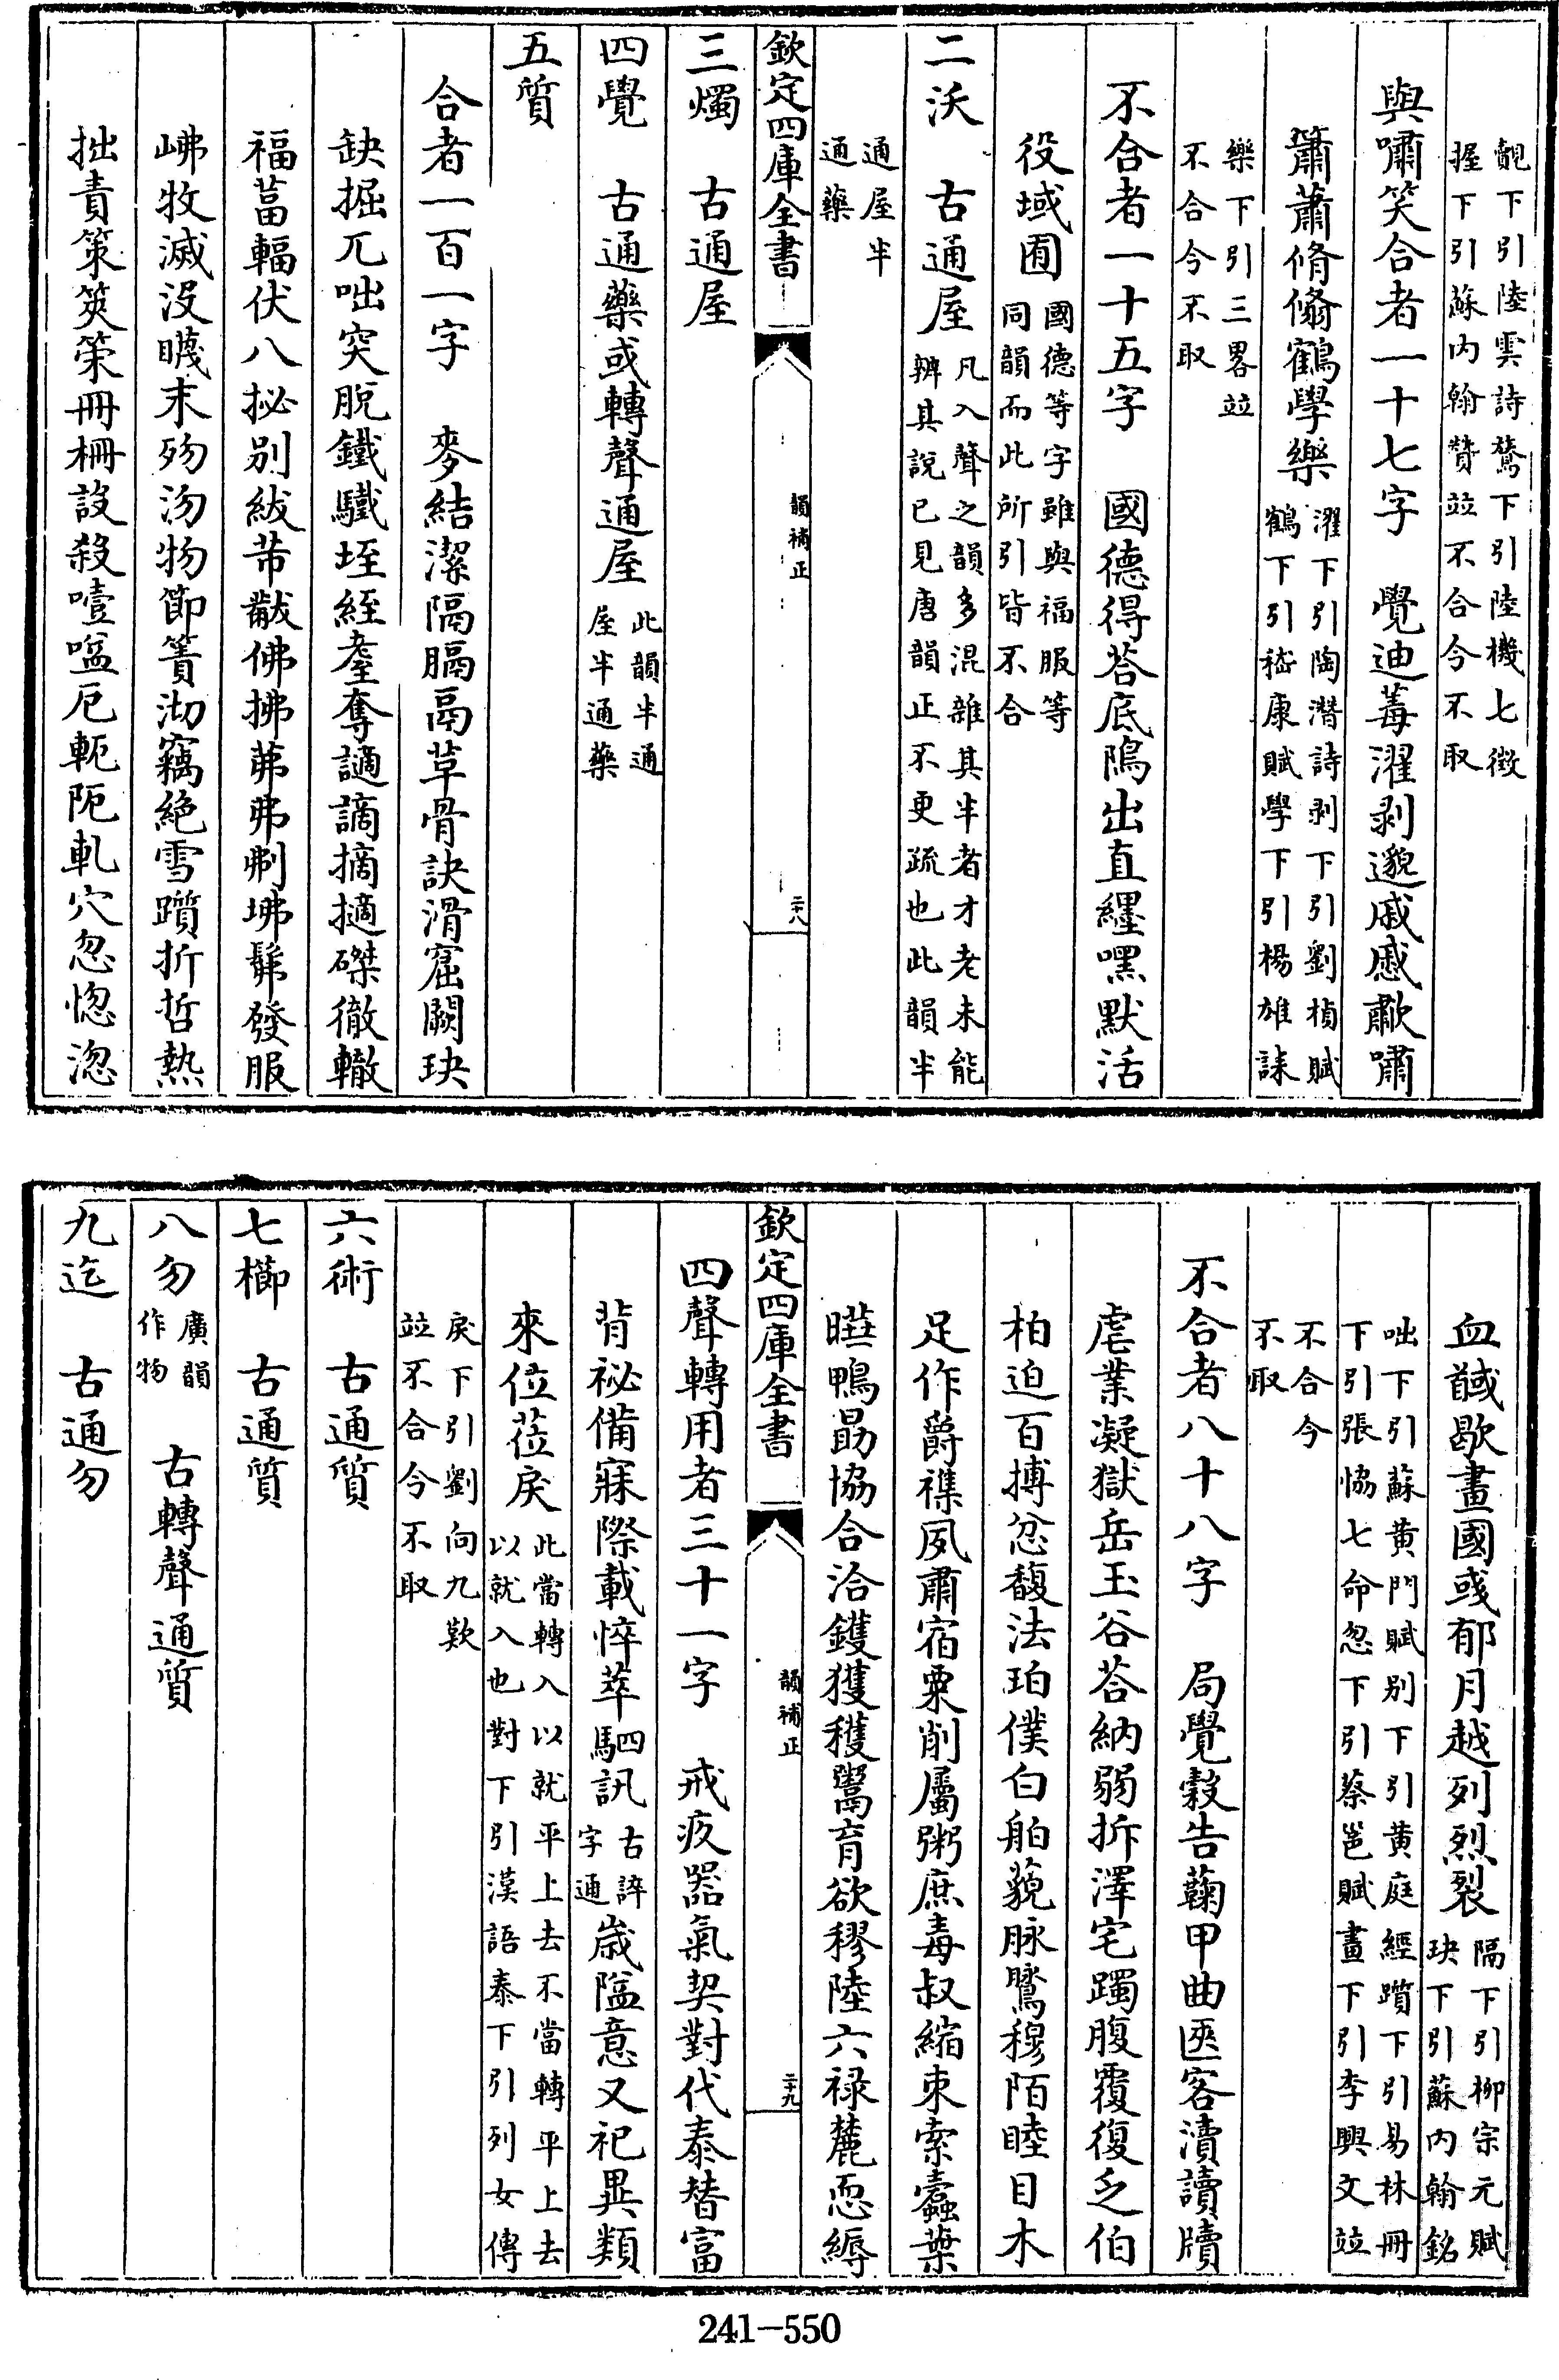 覿下引陸雲詩騖下引陸機七徵
握下引蘇内翰贊竝不合今不取
與嘯笑合者一十七字　覺迪䓯濯剥邈戚慼歗嘯
簫蕭脩翛鶴學樂濯下引陶潜詩剥下引劉楨賦
鶴下引嵇康賦學下引楊雄誄
樂下引三畧竝
不合今不取
不合者一十五字　國德得荅底隖出直纆嘿默活
役域囿國德等字雖與福服等
同韻而此所引皆不合
二沃　古通屋凡入聲之韻多混雜其半者才老未能
辨其説已見唐韻正不更疏也此韻半
通屋半
通藥
欽定四庫全書
韻補正
二十八
三燭　古通屋
四覺　古通藥或轉聲通屋此韻半通
屋半通藥
五質
合者一百一字　麥結潔隔膈鬲草骨訣滑窟闕玦
缺掘兀咄突脱鐵驖垤絰耋奪謫謫摘擿磔徹轍
福葍輻伏八拯别紱芾黻佛拂茀弗刜坲髴發服
岪牧滅没𥌚末歾沕物節簀沏竊絶雪躓折哲熱
拙責策筴筞冊柵設殺噎嗌厄軛阨軋穴忽惚淴
血馘歇畫國彧郁月越列烈裂隔下引柳宗元賦
玦下引蘇内翰銘
咄下引蘇黄門賦别下引黄庭經躓下引易林冊
下引張恊七命忽下引蔡邕賦畫下引李興文竝
不合今
不取
不合者八十八字　局覺穀告鞠甲曲匧客瀆讀牘
虐業凝獄岳玉谷荅納弱拆澤宅躅腹覆復乏伯
柏迫百搏忿馥法珀僕白舶藐脉騭穆陌睦目木
足作爵襍夙肅宿粟削屬粥庶毒叔縮束索蠹葉
曄鴨勗協合洽鑊獲穫鬻育欲穋陸六禄麓恧縟
欽定四庫全書
韻補正
二十九
四聲轉用者三十一字　戒疚器氣契對代泰替富
背祕備寐際載悴萃駟訊古誶
字通歲隘意又祀異類
來位莅戾此當轉入以就平上去不當轉平上去
以就入也對下引漢語泰下引列女傳
戾下引劉向九歎
竝不合今不取
六術　古通質
七櫛　古通質
八勿廣韻
作物　古轉聲通質
九迄　古通勿
241-550